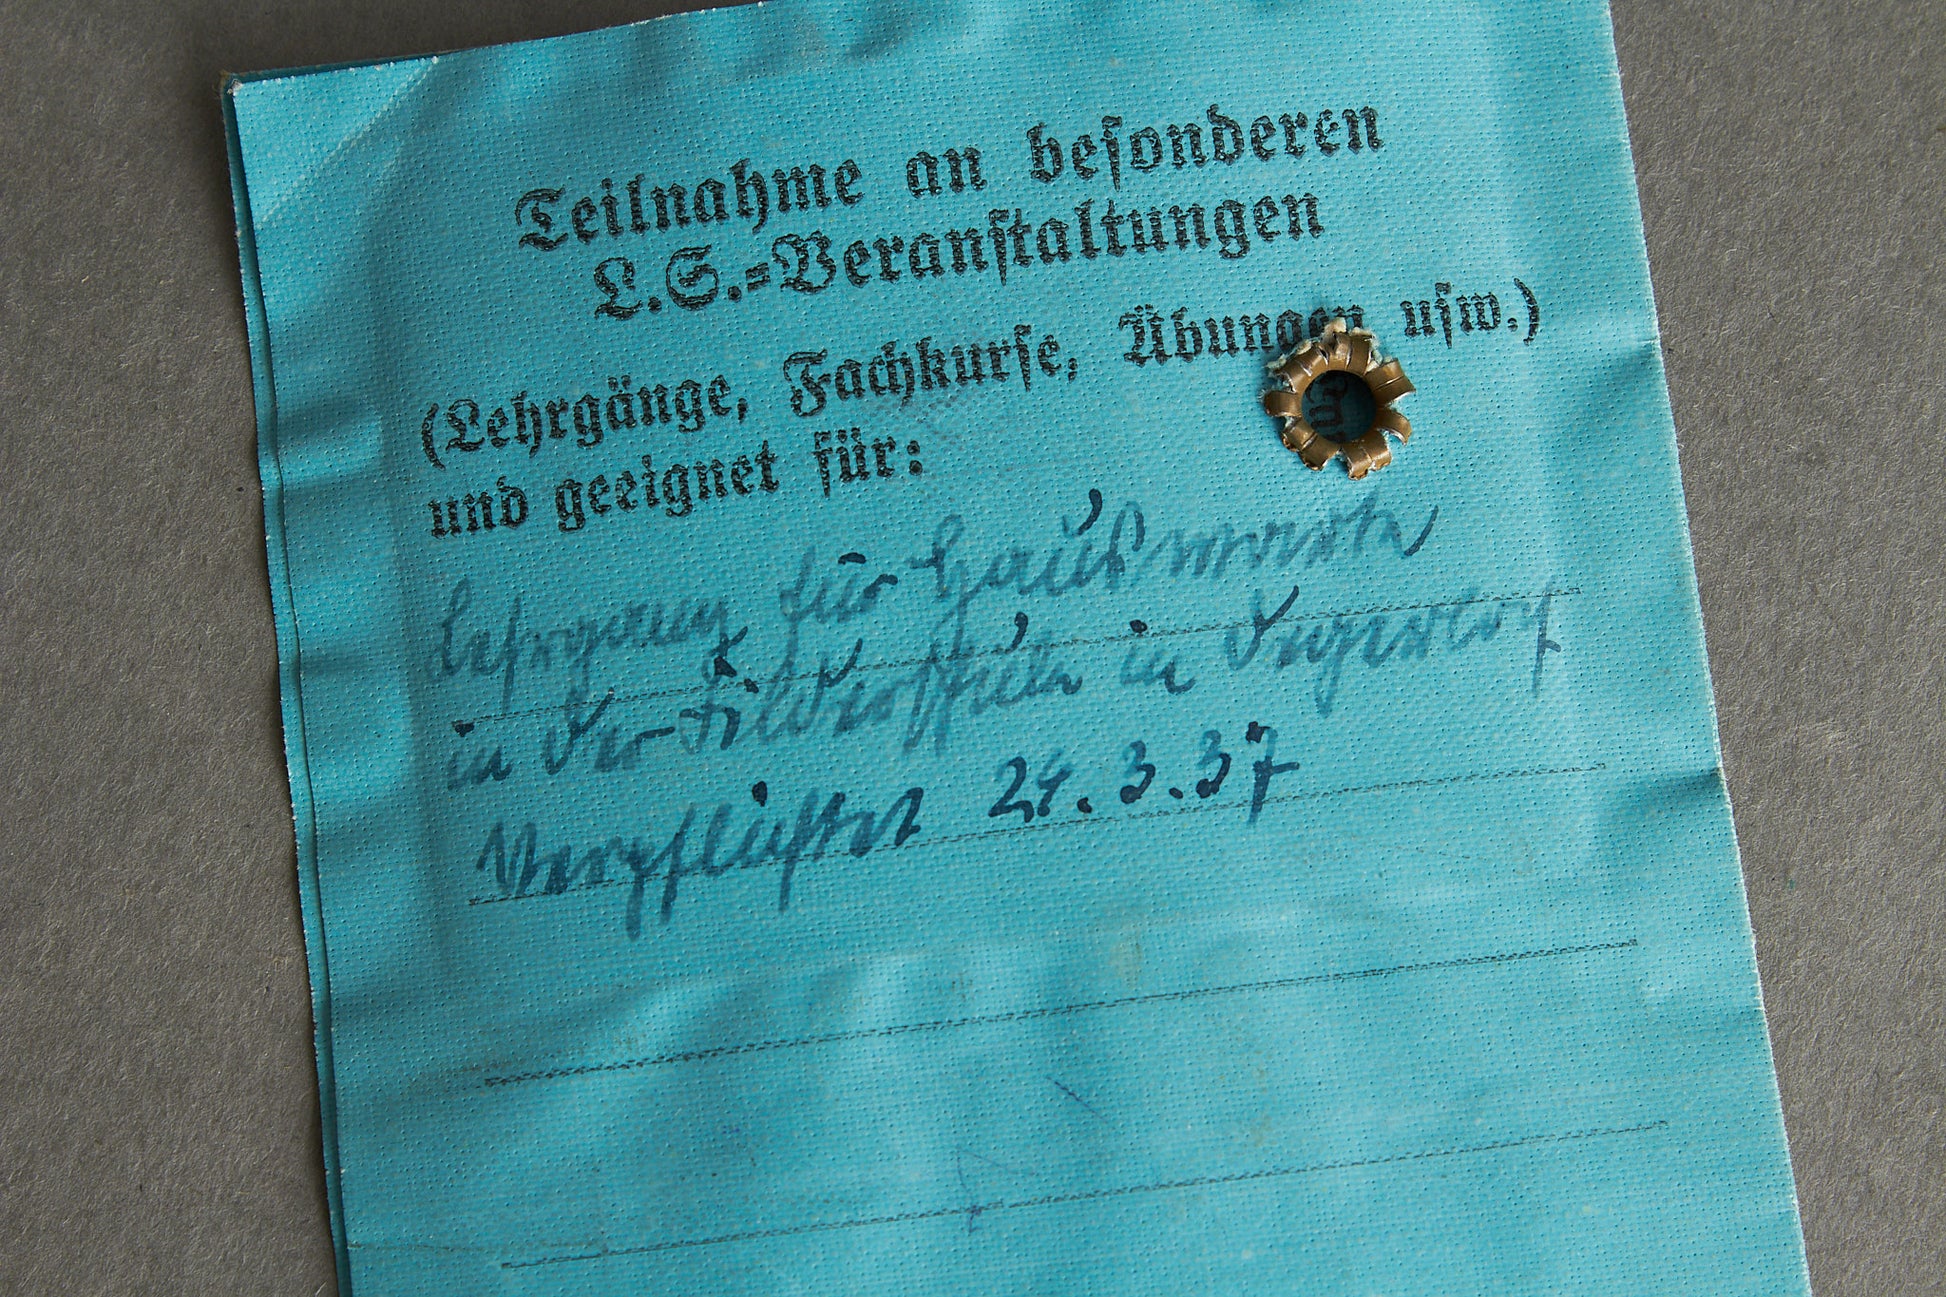 Teilnahme an besonderen
L.S.=Veranstaltungen
(Lehrgänge, Fachkurse, Übungen usw.)
und geeignet für:
Lehrgang für Hauswarte
in der in
Verpflichtet 24.3.37